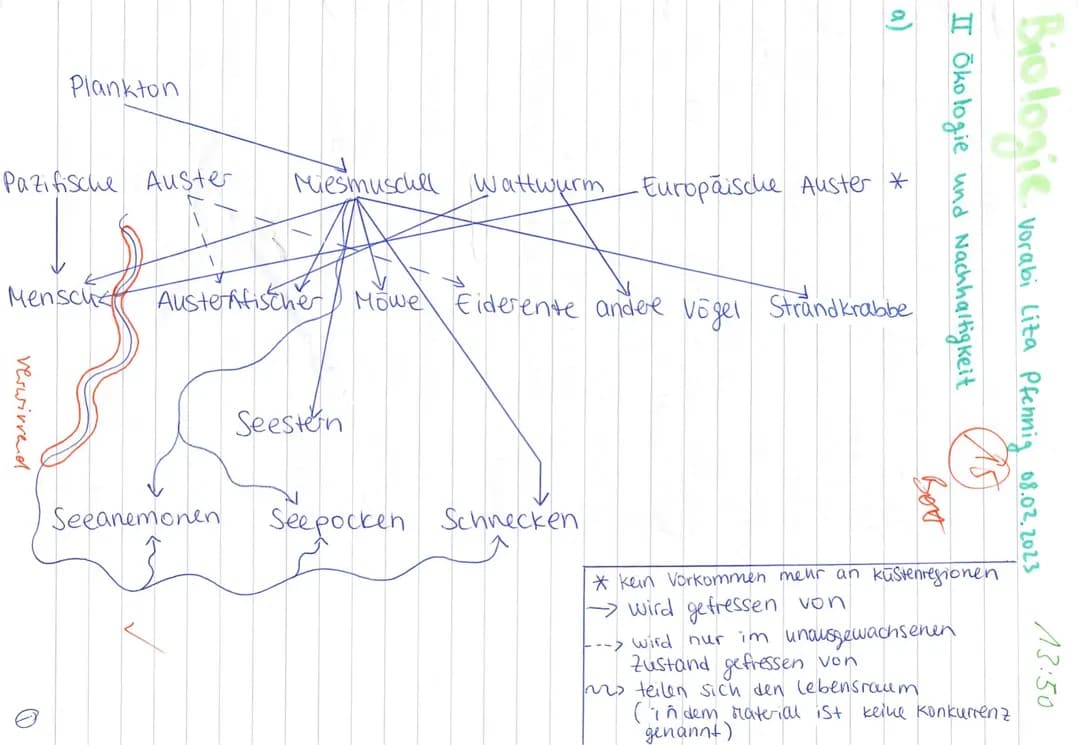 Biologie Vorabi Lita Pfennig 08.02.2023 13:50
II Ökologie und Nachhaltigkeit
15
a)
Plankton
Pazifische Auster Miesmuschel Wattwurm Europäische Auster *
Mensch Austernfischer Möwe Eiderente andere Vögel Strandkrabbe
verwirrend
Seestern
Seeanemonen Seepocken Schnecken
* kein Vorkommen mehr an Küstenregionen
→ wird gefressen von
---> wird nur im unausgewachsenen
Zustand gefressen von
~> teilen sich den Lebensraum
(in dem Material ist keine Konkurrenz
genannt)